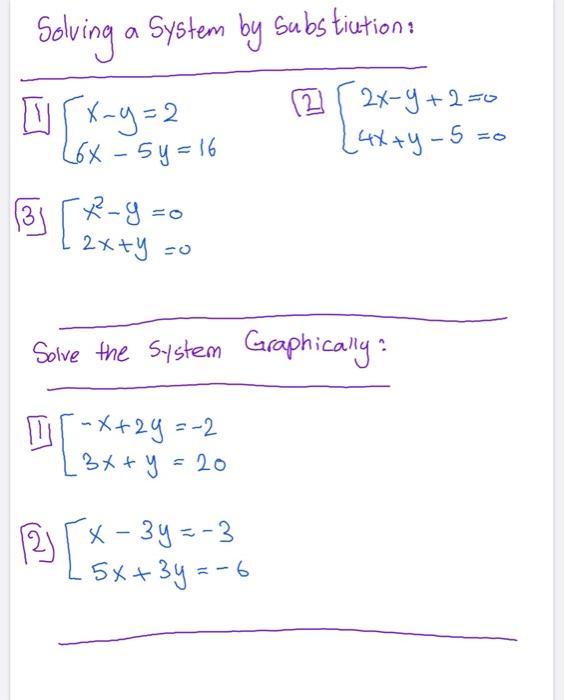 Solving a System by Substiution:
[1] x-y=2
6x-5y=16
[2] 2x-y+2=0
4x+y-5=0
[3] x²-y=0
2x+y=0
Solve the System Graphically:
[1] -x+2y=-2
3x+y=20
[2] x-3y=-3
5x+3y=-6